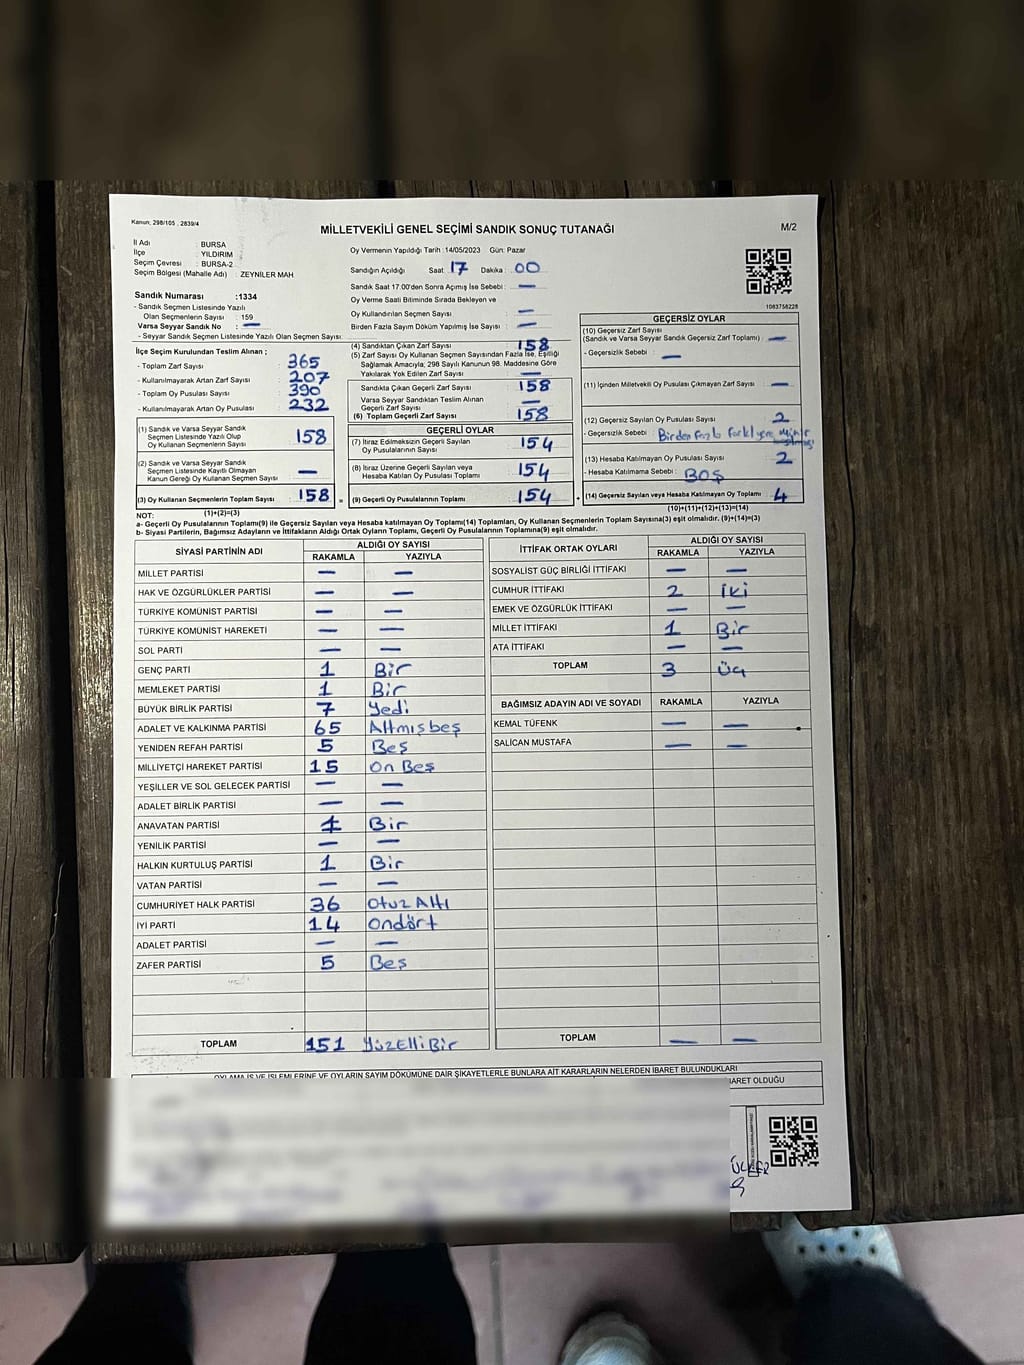 Kanun; 298/105 , 2839/4
MİLLETVEKİLİ GENEL SEÇİMİ SANDIK SONUÇ TUTANAĞI
M/2
İl Adı : BURSA
İlçe : YILDIRIM
Seçim Çevresi : BURSA-2
Seçim Bölgesi (Mahalle Adı) : ZEYNİLER MAH
Sandık Numarası :1334
- Sandık Seçmen Listesinde Yazılı
Olan Seçmenlerin Sayısı : 159
Varsa Seyyar Sandık No : —
- Seyyar Sandık Seçmen Listesinde Yazılı Olan Seçmen Sayısı:
Oy Vermenin Yapıldığı Tarih :14/05/2023 Gün: Pazar
Sandığın Açıldığı Saat 17 Dakika : 00
Sandık Saat 17.00'den Sonra Açımış İse Sebebi : —
Oy Verme Saati Bitiminde Sırada Bekleyen ve
Oy Kullandırılan Seçmen Sayısı : —
Birden Fazla Sayım Döküm Yapılmış İse Sayısı : —
1083758228
İlçe Seçim Kurulundan Teslim Alınan ;
- Toplam Zarf Sayısı : 365
- Kullanılmayarak Artan Zarf Sayısı : 207
- Toplam Oy Pusulası Sayısı : 390
- Kullanılmayarak Artan Oy Pusulası : 232
(1) Sandık ve Varsa Seyyar Sandık
Seçmen Listesinde Yazılı Olup
Oy Kullanan Seçmenlerin Sayısı 158
(2) Sandık ve Varsa Seyyar Sandık
Seçmen Listesinde Kayıtlı Olmayan
Kanun Gereği Oy Kullanan Seçmen Sayısı —
(3) Oy Kullanan Seçmenlerin Toplam Sayısı 158 =
(1)+(2)=(3)
(4) Sandıktan Çıkan Zarf Sayısı 158
(5) Zarf Sayısı Oy Kullanan Seçmen Sayısından Fazla İse, Eşitliği
Sağlamak Amacıyla; 298 Sayılı Kanunun 98. Maddesine Göre
Yakılarak Yok Edilen Zarf Sayısı : —
Sandıkta Çıkan Geçerli Zarf Sayısı 158
Varsa Seyyar Sandıktan Teslim Alınan
Geçerli Zarf Sayısı —
(6) Toplam Geçerli Zarf Sayısı 158
GEÇERLİ OYLAR
(7) İtiraz Edilmeksizin Geçerli Sayılan
Oy Pusulasının Sayısı 154
(8) İtiraz Üzerine Geçerli Sayılan veya
Hesaba Katılan Oy Pusulası Toplamı 154
(9) Geçerli Oy Pusulalarının Toplamı 154 +
GEÇERSİZ OYLAR
(10) Geçersiz Zarf Sayısı
(Sandık ve Varsa Seyyar Sandık Geçersiz Zarf Toplamı) —
- Geçersizlik Sebebi : —
(11) İçinden Milletvekili Oy Pusulası Çıkmayan Zarf Sayısı —
(12) Geçersiz Sayılan Oy Pusulası Sayısı 2
- Geçersizlik Sebebi : Birden fazla farklı yere
(13) Hesaba Katılmayan Oy Pusulası Sayısı 2
- Hesaba Katılmama Sebebi : BOŞ
(14) Geçersiz Sayılan veya Hesaba Katılmayan Oy Toplamı 4
(10)+(11)+(12)+(13)=(14)
NOT:
a- Geçerli Oy Pusulalarının Toplamı(9) ile Geçersiz Sayılan veya Hesaba katılmayan Oy Toplamı(14) Toplamları, Oy Kullanan Seçmenlerin Toplam Sayısına(3) eşit olmalıdır. (9)+(14)=(3)
b- Siyasi Partilerin, Bağımsız Adayların ve İttifakların Aldığı Ortak Oyların Toplamı, Geçerli Oy Pusulalarının Toplamına(9) eşit olmalıdır.
SİYASİ PARTİNİN ADI ALDIĞI OY SAYISI
RAKAMLA YAZIYLA
MİLLET PARTİSİ — —
HAK VE ÖZGÜRLÜKLER PARTİSİ — —
TÜRKİYE KOMÜNİST PARTİSİ — —
TÜRKİYE KOMÜNİST HAREKETİ — —
SOL PARTİ — —
GENÇ PARTİ 1 Bir
MEMLEKET PARTİSİ 1 Bir
BÜYÜK BİRLİK PARTİSİ 7 Yedi
ADALET VE KALKINMA PARTİSİ 65 Altmışbeş
YENİDEN REFAH PARTİSİ 5 Beş
MİLLİYETÇİ HAREKET PARTİSİ 15 On Beş
YEŞİLLER VE SOL GELECEK PARTİSİ — —
ADALET BİRLİK PARTİSİ — —
ANAVATAN PARTİSİ 1 Bir
YENİLİK PARTİSİ — —
HALKIN KURTULUŞ PARTİSİ 1 Bir
VATAN PARTİSİ — —
CUMHURİYET HALK PARTİSİ 36 Otuz Altı
İYİ PARTİ 14 Ondört
ADALET PARTİSİ — —
ZAFER PARTİSİ 5 Beş
TOPLAM 151 YüzelliBir
İTTİFAK ORTAK OYLARI ALDIĞI OY SAYISI
RAKAMLA YAZIYLA
SOSYALİST GÜÇ BİRLİĞİ İTTİFAKI — —
CUMHUR İTTİFAKI 2 İki
EMEK VE ÖZGÜRLÜK İTTİFAKI — —
MİLLET İTTİFAKI 1 Bir
ATA İTTİFAKI — —
TOPLAM 3 Üç
BAĞIMSIZ ADAYIN ADI VE SOYADI RAKAMLA YAZIYLA
KEMAL TÜFENK — —
SALİCAN MUSTAFA — —
TOPLAM — —
OYLAMA İŞ VE İŞLEMLERİNE VE OYLARIN SAYIM DÖKÜMÜNE DAİR ŞİKAYETLERLE BUNLARA AİT KARARLARIN NELERDEN İBARET BULUNDUKLARI
BARET OLDUĞU
ÜLKER